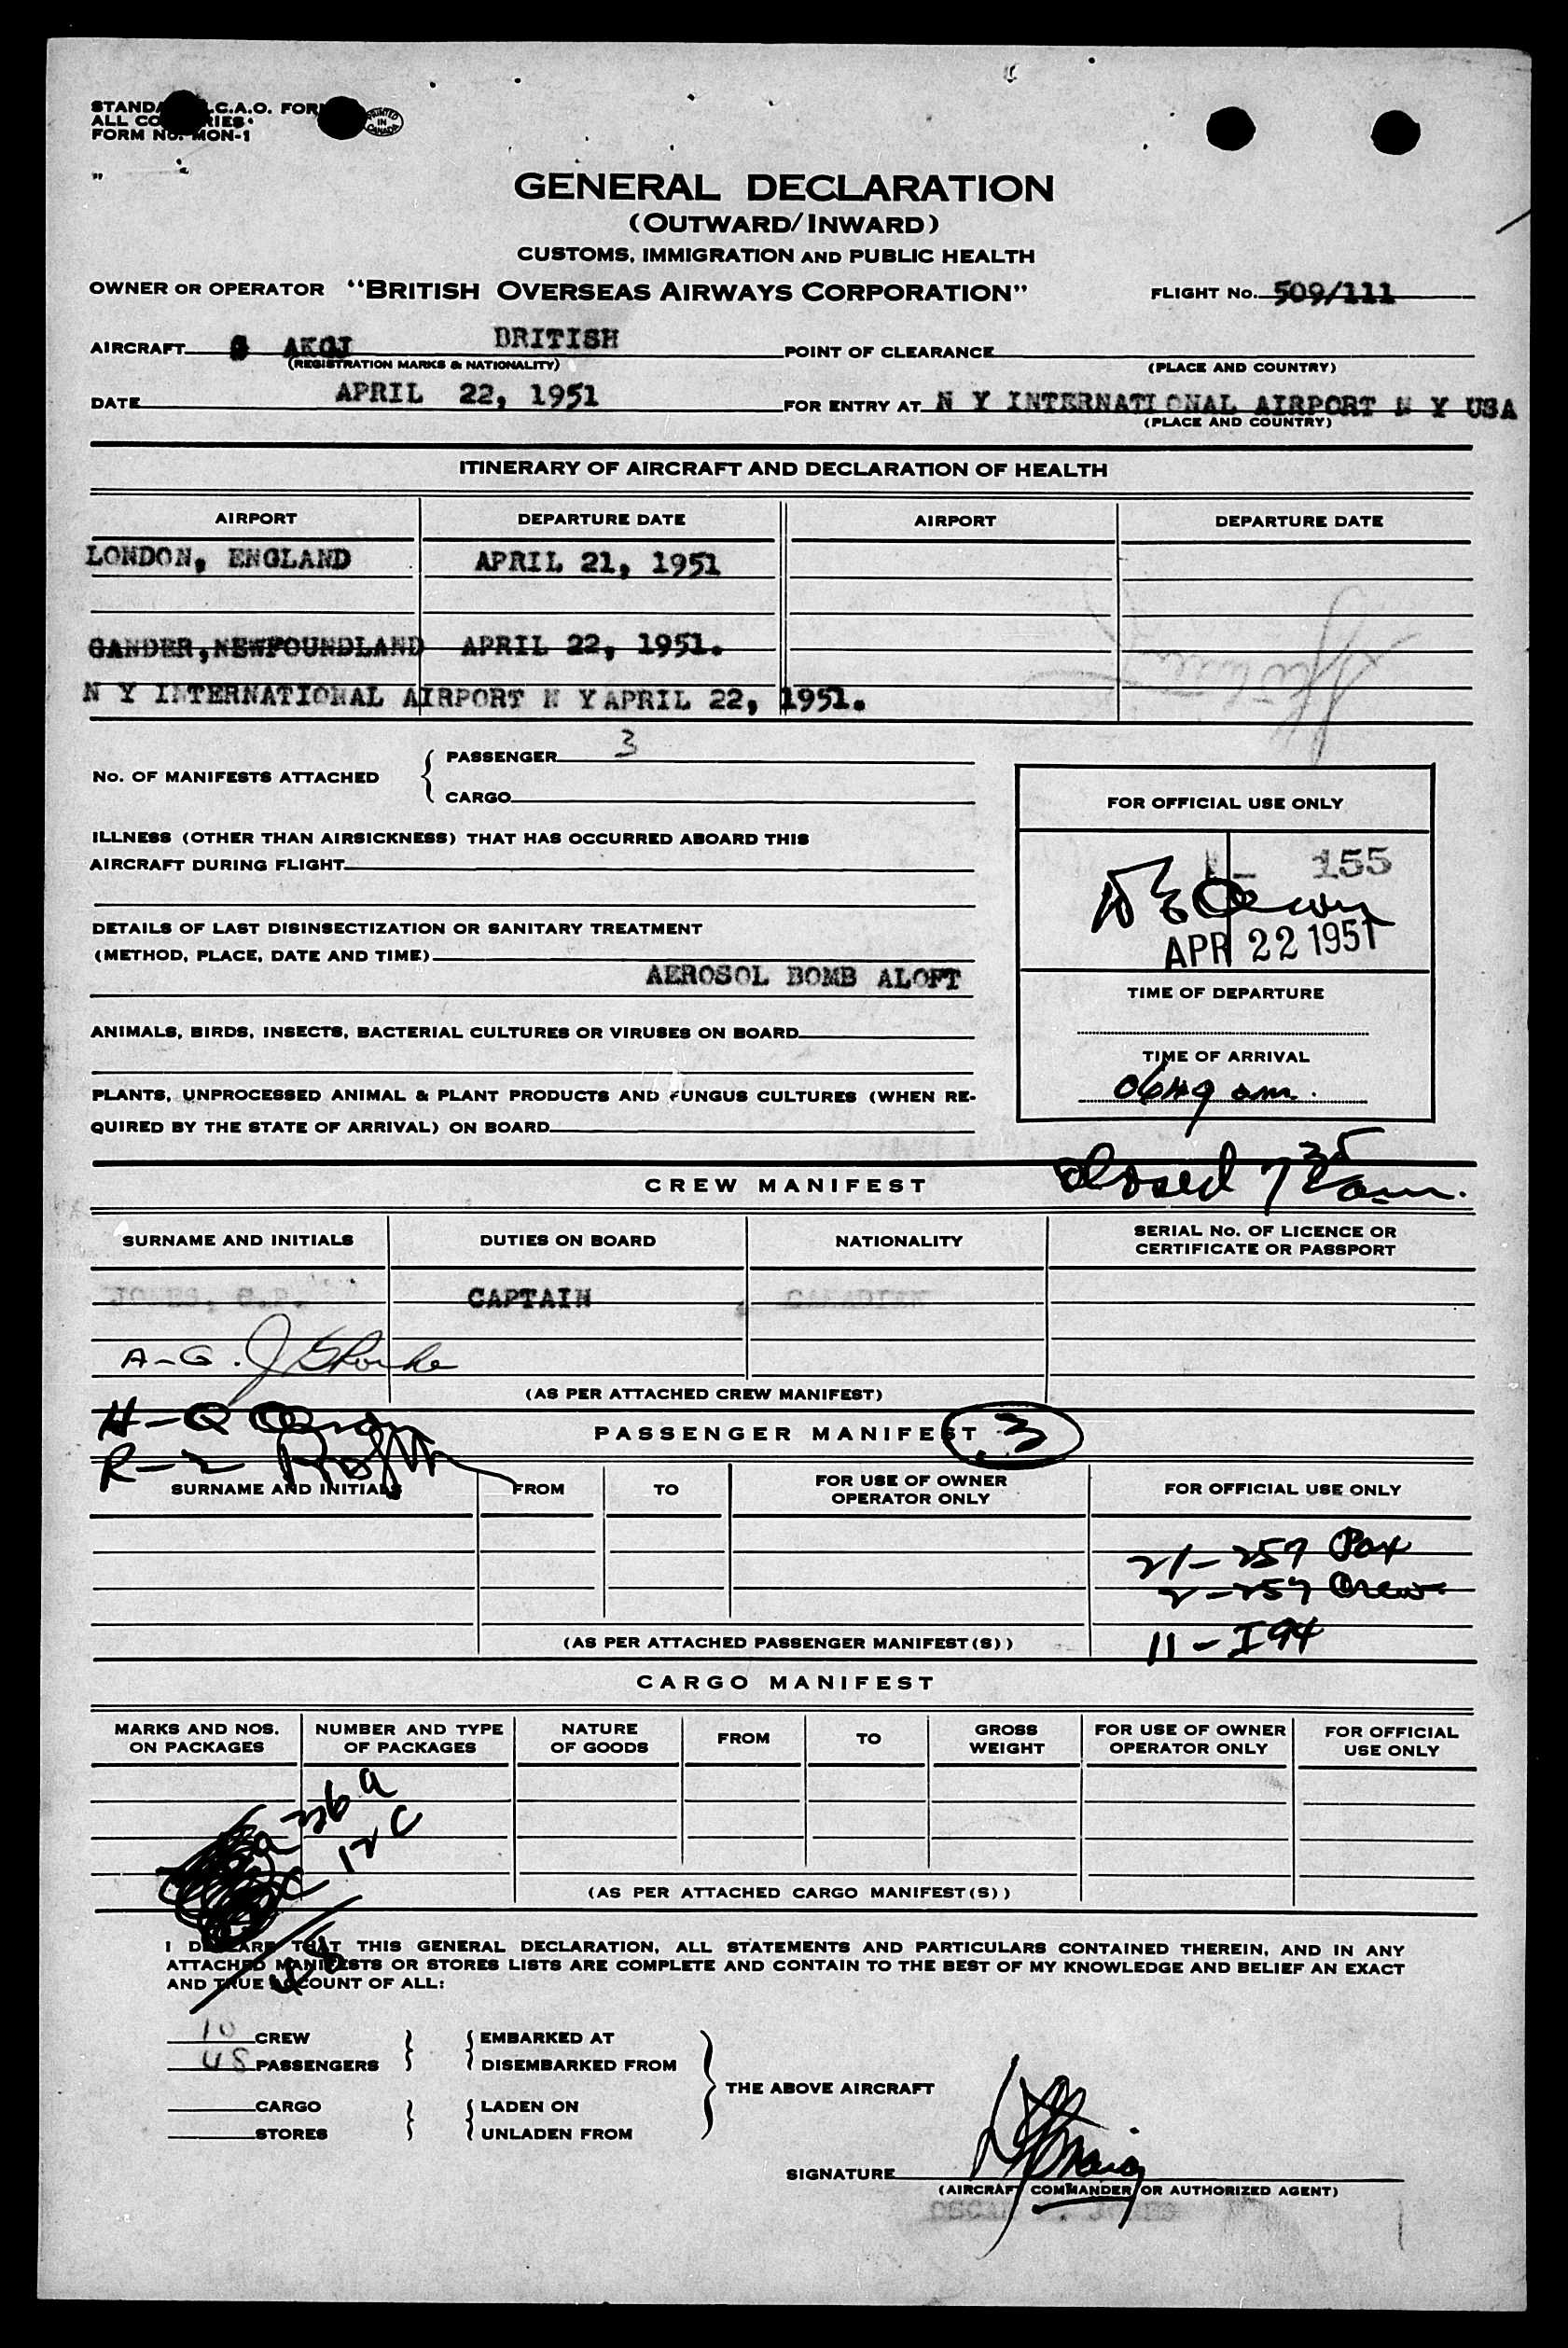 STANDA .C.A.O. FOR
ALL CO RIES
FORM No. MON-1
PRINTED IN CANADA
GENERAL DECLARATION
(OUTWARD/INWARD)
CUSTOMS, IMMIGRATION AND PUBLIC HEALTH
OWNER OR OPERATOR "BRITISH OVERSEAS AIRWAYS CORPORATION" FLIGHT No. 509/111
AIRCRAFT G AKGJ BRITISH POINT OF CLEARANCE
(REGISTRATION MARKS & NATIONALITY) (PLACE AND COUNTRY)
DATE APRIL 22, 1951 FOR ENTRY AT N Y INTERNATIONAL AIRPORT N Y USA
(PLACE AND COUNTRY)
ITINERARY OF AIRCRAFT AND DECLARATION OF HEALTH
AIRPORT DEPARTURE DATE AIRPORT DEPARTURE DATE
LONDON, ENGLAND APRIL 21, 1951
GANDER, NEWFOUNDLAND APRIL 22, 1951.
N Y INTERNATIONAL AIRPORT N Y APRIL 22, 1951.
No. OF MANIFESTS ATTACHED
PASSENGER 3
CARGO
ILLNESS (OTHER THAN AIRSICKNESS) THAT HAS OCCURRED ABOARD THIS
AIRCRAFT DURING FLIGHT
DETAILS OF LAST DISINSECTIZATION OR SANITARY TREATMENT
(METHOD, PLACE, DATE AND TIME)
AEROSOL BOMB ALOFT
ANIMALS, BIRDS, INSECTS, BACTERIAL CULTURES OR VIRUSES ON BOARD
PLANTS, UNPROCESSED ANIMAL & PLANT PRODUCTS AND FUNGUS CULTURES (WHEN RE-
QUIRED BY THE STATE OF ARRIVAL) ON BOARD
FOR OFFICIAL USE ONLY
155
APR 22 1951
TIME OF DEPARTURE
TIME OF ARRIVAL
0649 am.
Closed 7 35 am.
CREW MANIFEST
SURNAME AND INITIALS DUTIES ON BOARD NATIONALITY SERIAL No. OF LICENCE OR
CERTIFICATE OR PASSPORT
JONES, CAPTAIN CANADIAN
A-G.
(AS PER ATTACHED CREW MANIFEST)
H-Q
R-2
PASSENGER MANIFEST 3
SURNAME AND INITIALS FROM TO FOR USE OF OWNER
OPERATOR ONLY FOR OFFICIAL USE ONLY
21-257 Pax
2-257 Crew
11-I94
(AS PER ATTACHED PASSENGER MANIFEST(S))
CARGO MANIFEST
MARKS AND NOS.
ON PACKAGES NUMBER AND TYPE
OF PACKAGES NATURE
OF GOODS FROM TO GROSS
WEIGHT FOR USE OF OWNER
OPERATOR ONLY FOR OFFICIAL
USE ONLY
12 C
(AS PER ATTACHED CARGO MANIFEST(S))
48
I DECLARE THAT THIS GENERAL DECLARATION, ALL STATEMENTS AND PARTICULARS CONTAINED THEREIN, AND IN ANY
ATTACHED MANIFESTS OR STORES LISTS ARE COMPLETE AND CONTAIN TO THE BEST OF MY KNOWLEDGE AND BELIEF AN EXACT
AND TRUE ACCOUNT OF ALL:
10 CREW EMBARKED AT
48 PASSENGERS DISEMBARKED FROM
THE ABOVE AIRCRAFT
CARGO LADEN ON
STORES UNLADEN FROM
SIGNATURE
(AIRCRAFT COMMANDER OR AUTHORIZED AGENT)